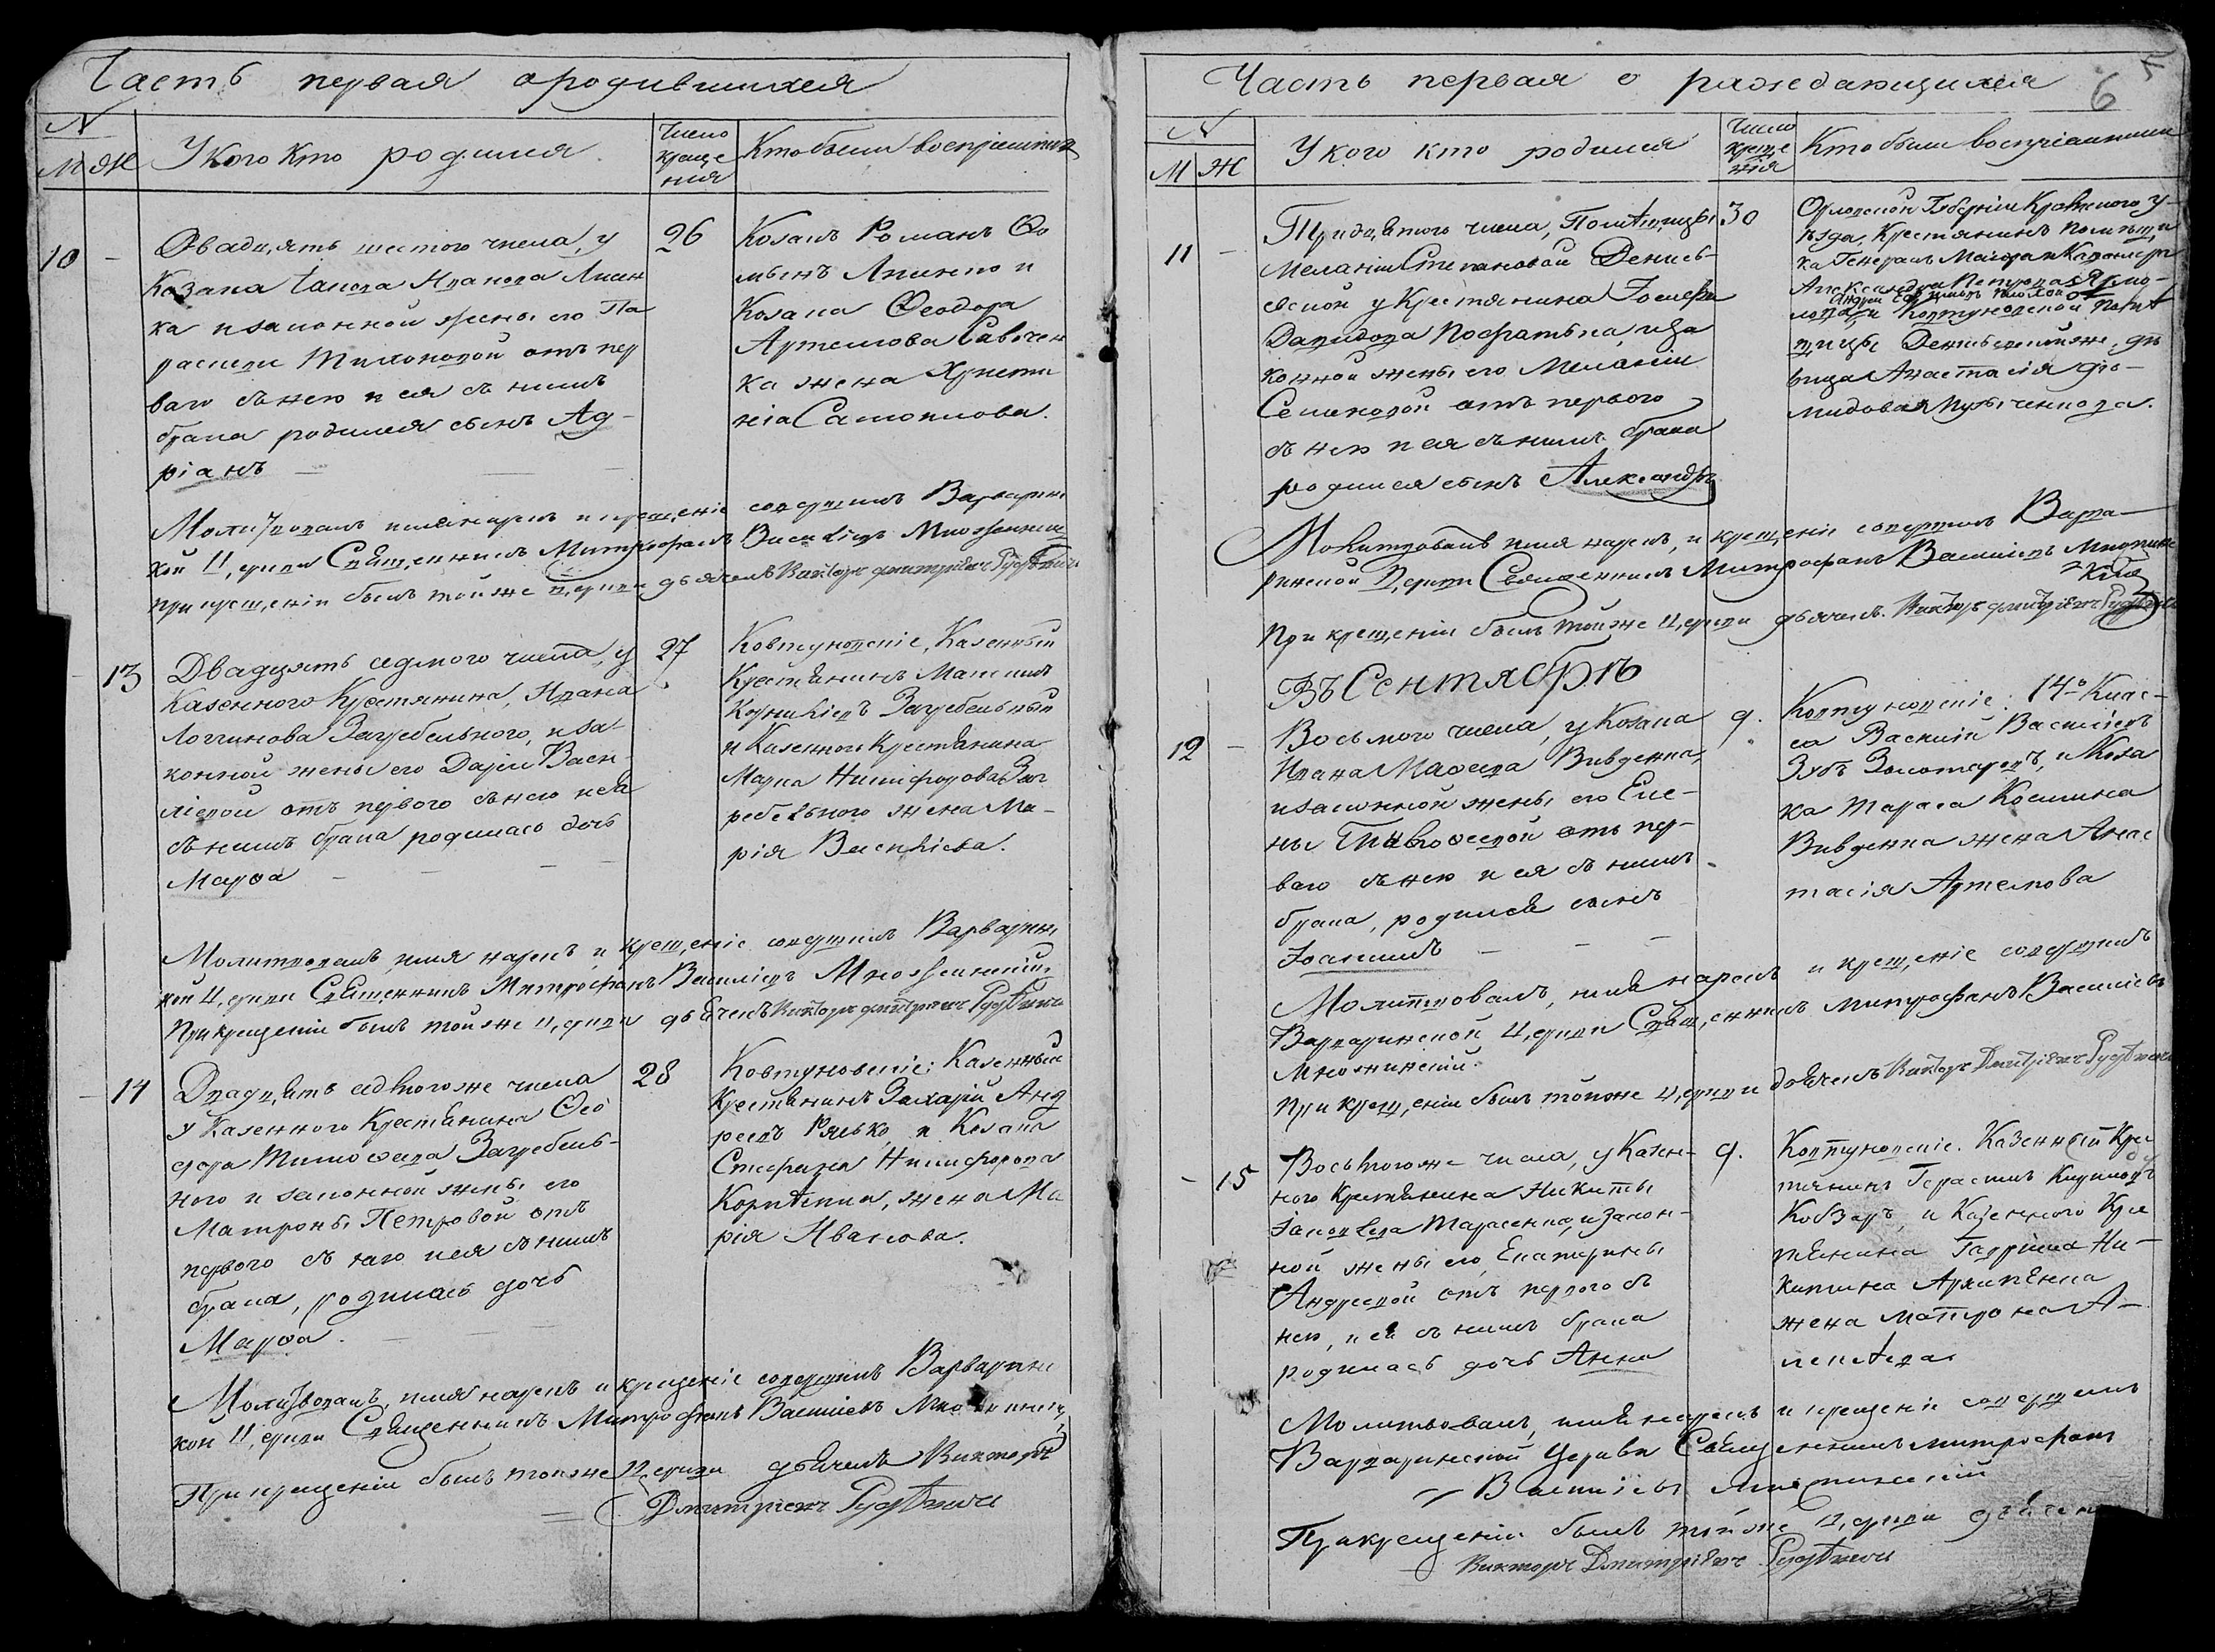 Часть первая ородившихся
N
М Ж
У кого кто родился
Число
креще
ния
Кто были восприемники
10 -
Двадцять шестого числа, у
Козака Іакова Иванова Лисен
ка и законной жены его Па
раскеви Тихоновой отъ пер
ваго съ нею и ея съ нимъ
брака родился сынъ Ад-
ріанъ
26
Козакъ Романъ Ѳо
минъ и
Козака Ѳеодора
Артемова Савочен
ка жена Христи
нія Самоилова.
Молитвовалъ имя нарекъ и крещеніе совершилъ Варварин
кой Церкви Священникъ Митрофанъ Василіевъ
При крещеніи былъ тойже Церкви дьячекъ Викторъ Дмитріевъ
- 13
Двадцять седмого числа, у
Казенного Крестянина, Ивана
Логгинова Загребельного, и за-
конной жены его Даріи Васи-
ліевой отъ первого съ нею и ея
съ нимъ брака родилась дочь
Марѳа
27
Ковтуновскіе, Казенный
Крестянинъ Максимъ
Корниліевъ Загребельный
и Казенного Крестянина
Марка Никифорова Заг
ребельного жена Ма-
рія Василіева.
Молитвовалъ, имя нарекъ, и крещеніе совершилъ Варварин
кой Церкви Священникъ Митрофанъ Василіевъ
При крещеніи былъ тойже Церкви дьячекъ Викторъ Дмитріевъ
- 14
Двадцять седмогоже числа
у Казенного Крестянина Ѳео
дора Тимоѳеева Загребель-
ного и законной жены его
Матроны Петровой отъ
первого съ нею и ея съ нимъ
брака, родилась дочь
Марѳа.
28
Ковтуновскіе: Казенный
Крестянинъ Захарій Анд
реевъ Рябко, и Козака
Стефана Никифорова
жена Ма
рія Иванова.
Молитвовалъ, имя нарекъ и крещеніе совершилъ Варварин
кой Церкви Священникъ Митрофанъ Василіевъ
При крещеніи былъ тойже Церкви дьячекъ Викторъ
Дмитріевъ
Часть первая о раждающихся
6
N
М Ж
У кого кто родился
Число
креще
нія
Кто были воспріемники
11 -
Тридцятого числа, Помѣщицы
Меланіи Степановой Денись-
евской у Крестянина Іосифа
Давидова и за
конной жены его Меланіи
Семеновой отъ первого
съ нею и ея съ нимъ брака
родился сынъ Александръ
30
Орловской Губерніи Кромского у-
ѣзда, Крестянинъ помѣщи
ка Генералъ Маіора и Кавалера
Александра
и Ковтуновской помѣ
щицы Денисьевскойже, дѣ
вица Анастасія Дио-
мидова
Молитвовалъ имя нарекъ, и крещеніе совершилъ Варва-
ринской Церкви Священникъ Митрофанъ Василіевъ
При крещеніи былъ тойже Церкви дьячекъ Викторъ Дмитріевъ
Въ Сентябрѣ
12 -
Восьмого числа, у Козака
Ивана Макеева Вивденка,
и законной жены его Еле-
ны Тимоѳеевой отъ пер-
ваго съ нею и ея съ нимъ
брака, родился сынъ
Іоакимъ
9.
Ковтуновскіе: 14-го Клас-
са Василій Василіевъ
Зубъ Золотаревъ, и Коза
ка Тараса Космина
Вивденка жена Анас
тасія Артемова
Молитвовалъ, имя нарекъ и крещеніе совершилъ
Варваринской Церкви Священникъ Митрофанъ Василіевъ
При крещеніи былъ тойже Церкви дьячекъ Викторъ Дмитріевъ
- 15
Восьмогоже числа, у Казен-
ного Крестянина Никиты
Іаковлева Тарасенка, и закон-
ной жены его, Екатерины
Андреевой отъ первого съ
нею, и ея съ нимъ брака
родилась дочь Анна
9.
Ковтуновскіе. Казенный Крес
тянинъ Герасимъ
Кобзарь, и Казенного Крес
тянина Гавриила Ни-
китина
жена Матрона А-
лексѣева
Молитвовалъ, имя нарекъ и крещеніе совершилъ
Варваринской Церкви Священникъ Митрофанъ
Василіевъ
При крещеніи былъ тойже Церкви дьячекъ
Викторъ Дмитріевъ